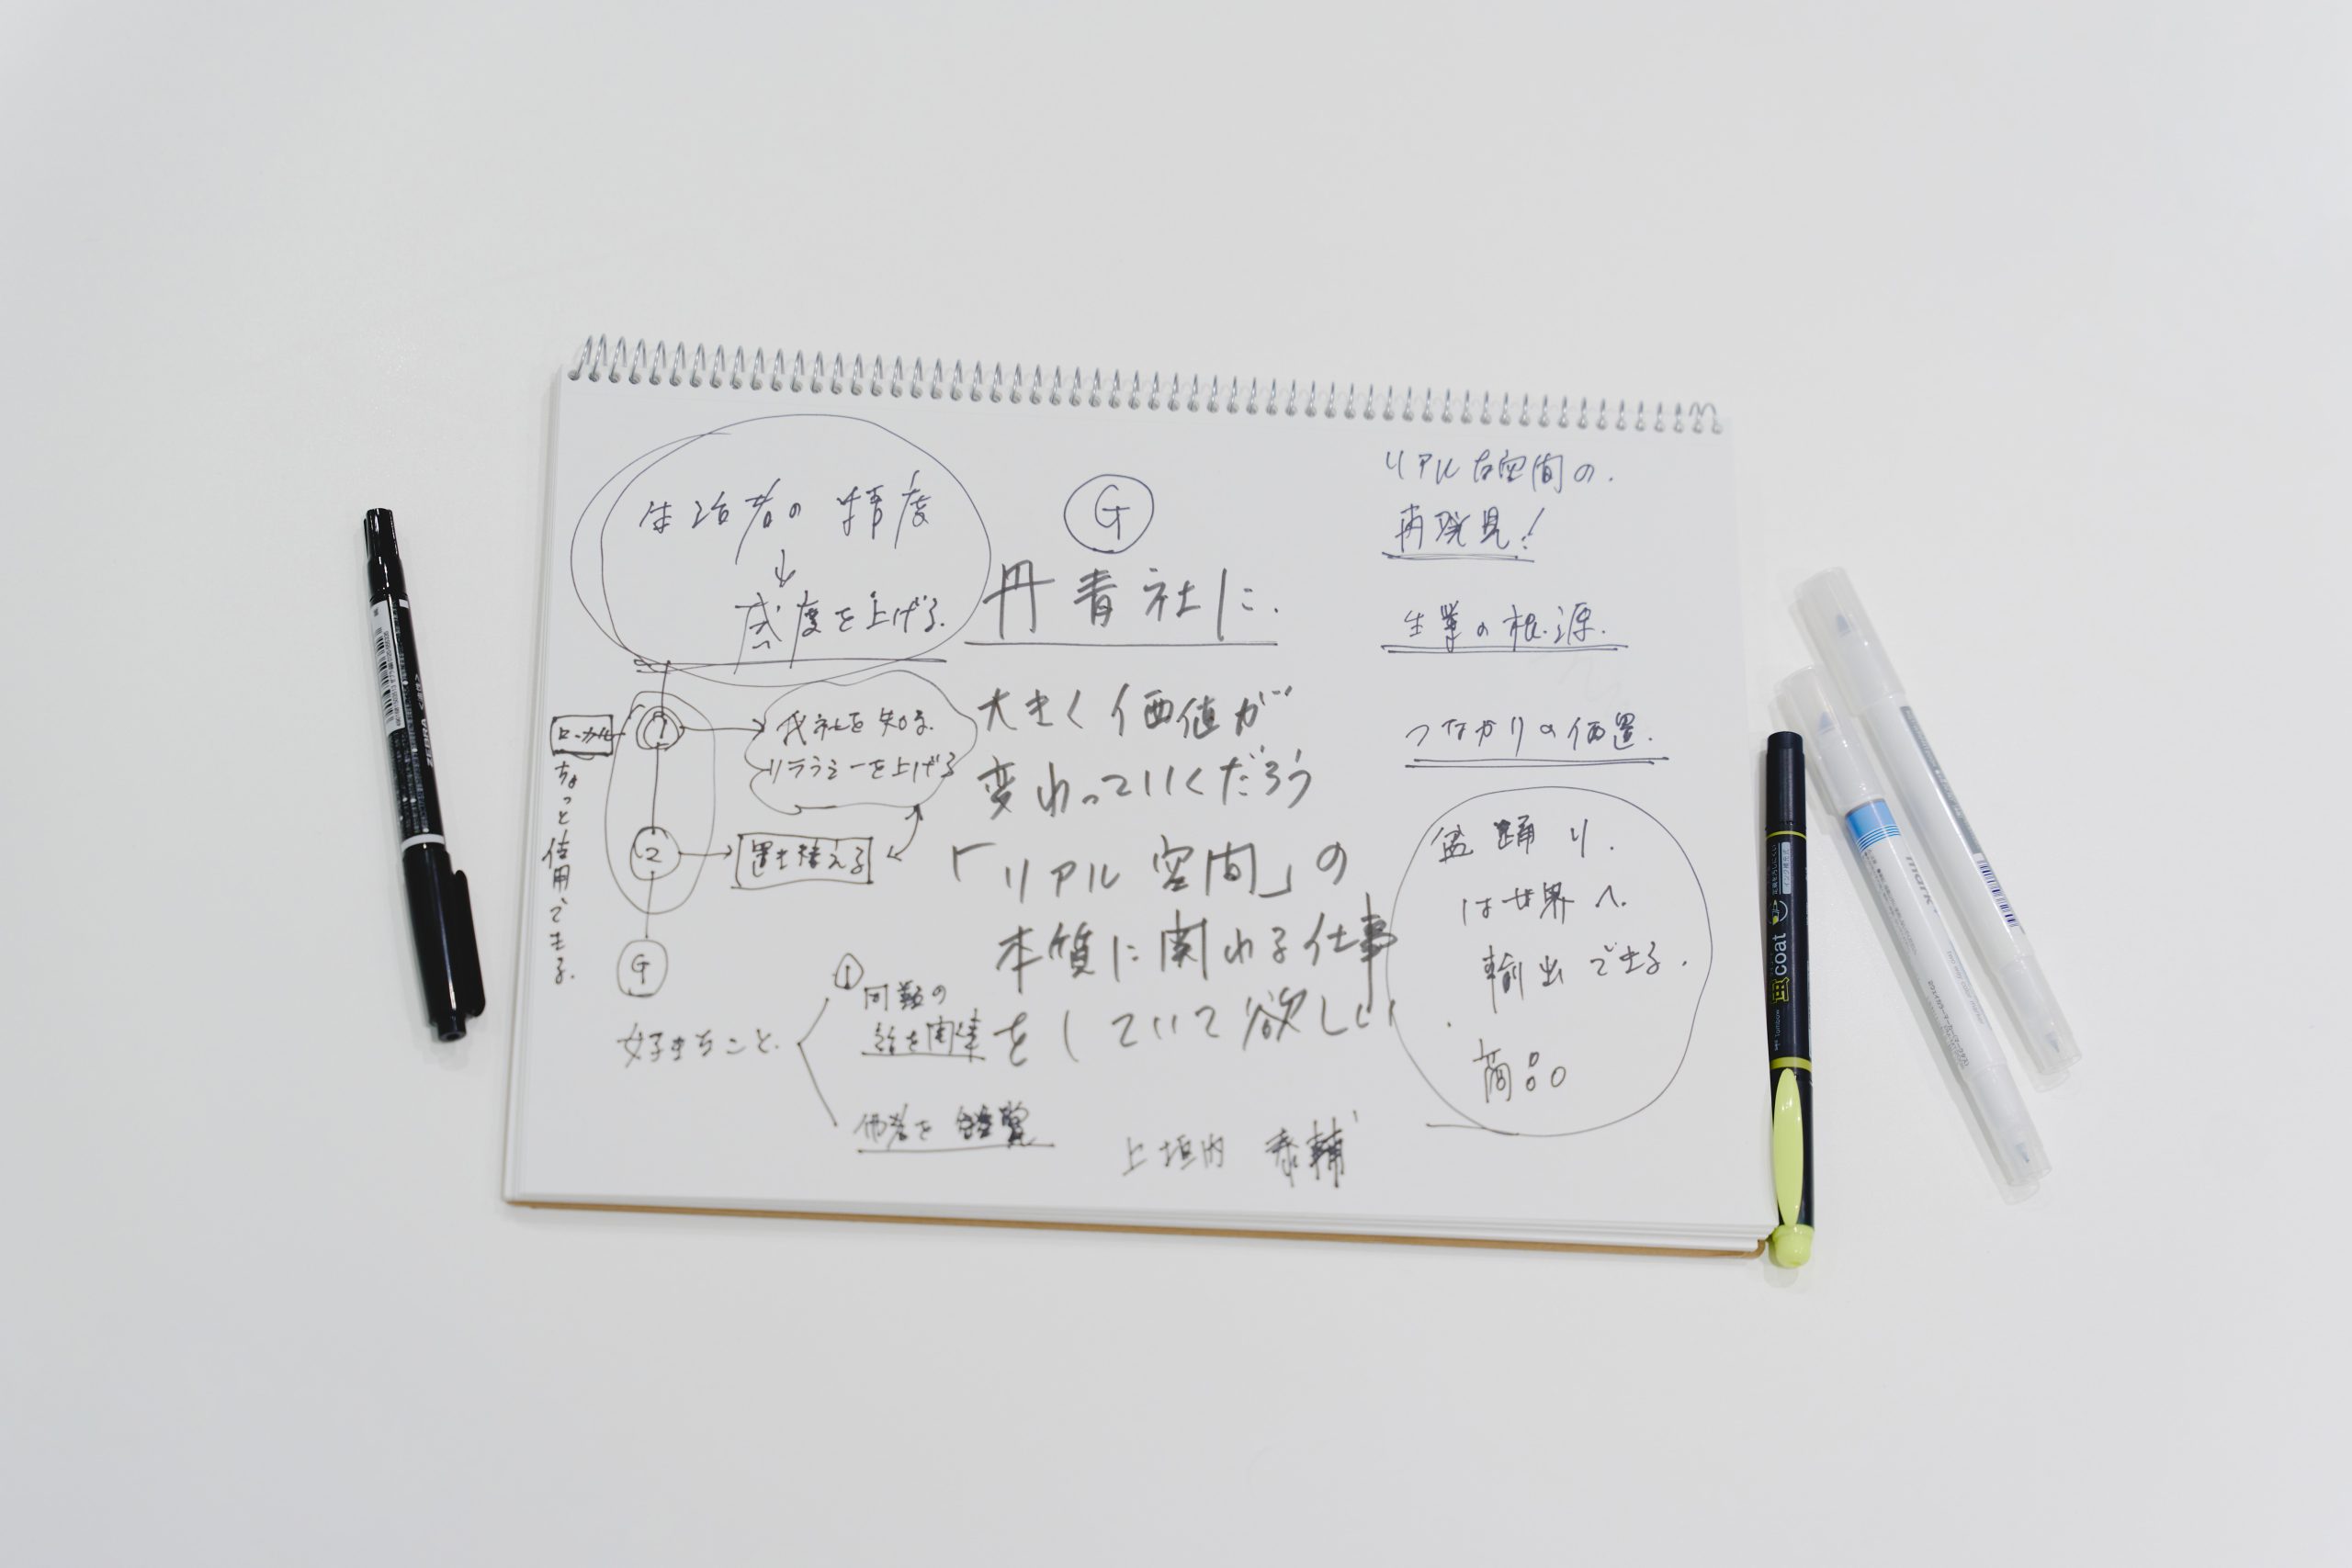 生活者の精度
↓
感度を上げる.
ローカル
ちょっと信用できる.
1
我社を知る.
リテラシーを上げる
2
置き替える
G
好きなこと.
①
同類の
絵を
価値を
G
丹青社に.
大きく価値が
変わっていくだろう
「リアル空間」の
本質に関われる仕事
をしていて欲しい.
上垣内 泰輔
リアルな空間の.
再発見!
生業の根源.
つながりの価置.
盆踊り.
は世界へ.
輸出できる.
商品
ZEBRA
蛍coat
Tombow
mark+